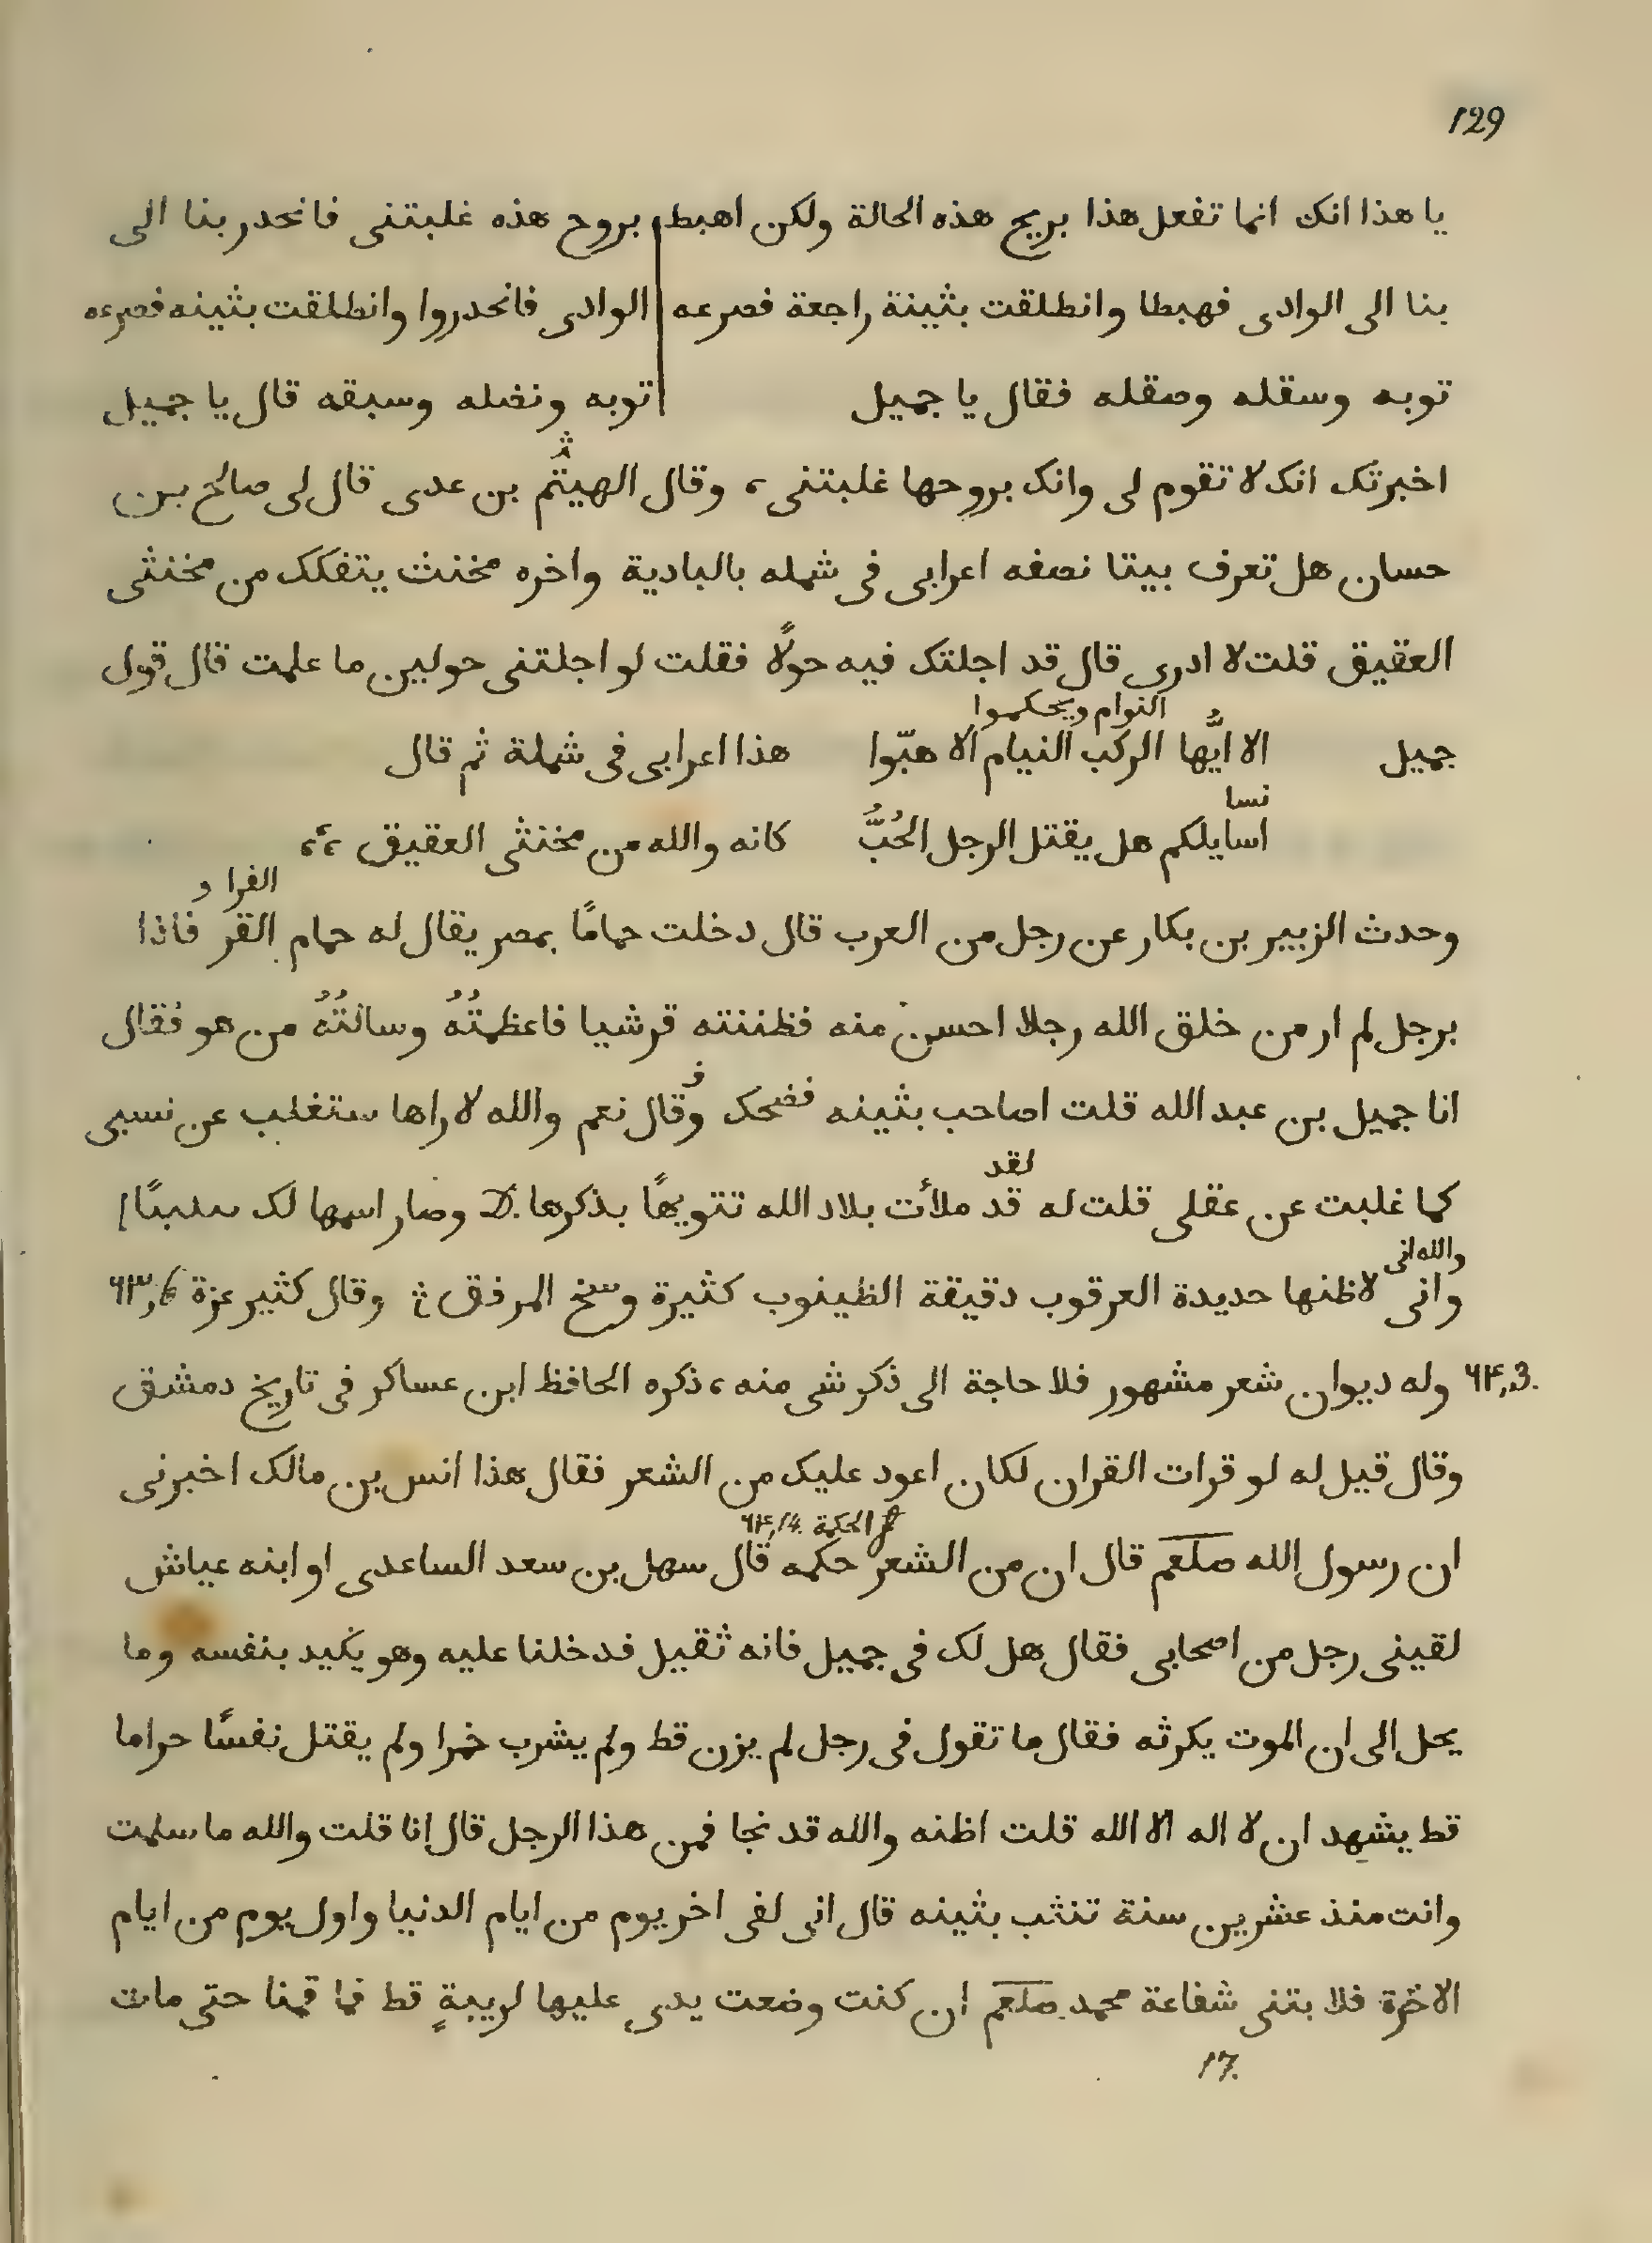 129
يا هذا انك انما تفعل هذا بريح هذه الحالة ولكن اهبط
بنا الى الوادى فهبطا وانطلقت بثينة راجعة فصرعه
توبه وسقله وصقله فقال يا جميل
بروح هذه غلبتنى فانحدر بنا الى
الوادى فانحدروا وانطلقت بثينه فصرعه
توبه ونضله وسبقه قال يا جميل
اخبرتك انك لا تقوم لى وانك بروحها غلبتنى، وقال الهيثم بن عدى قال لى صالح بن
حسان هل تعرف بيتا نصفه اعرابى فى شمله بالبادية واخره مخنث يتفكك من مخنثى
العقيق قلت لا ادرى قال قد اجلتك فيه حولًا فقلت لو اجلتنى حولين ما علمت قال قول
النوام ويحكموا
جميل الا ايُّها الركب النيام الا هبّوا هذا اعرابى فى شملة ثم قال
نسا
اسايلكم هل يقتل الرجل الحُبُّ كانه والله من مخنثى العقيق ،،
الفرا و
وحدث الزبير بن بكار عن رجل من العرب قال دخلت حمامًا بمصر يقال له حمام القر فاذا
برجل لم ار من خلق الله رجلا احسن منه فظننته قرشيا فاعظمتُهُ وسالتُهُ من هو فقال
ف
انا جميل بن عبد الله قلت اصاحب بثينه فضحك وقال نعم والله لاراها ستغلب عن نسبى
لقد
كما غلبت عن عقلى قلت له قد ملأت بلاد الله تنويهًا بذكرها D. وصار اسمها لك
والله انى
وانى لاظنها حديدة العرقوب دقيقة الظينوب كثيرة وسخ المرفق وقال كثير عزة ٦٣,6
٦٤,3. وله ديوان شعر مشهور فلا حاجة الى ذكر شى منه، ذكره الحافظ ابن عساكر فى تاريخ دمشق
وقال قيل له لو قرات القران لكان اعود عليك من الشعر فقال هذا انس بن مالك اخبرنى
الحكمة ٦٤,14.
ان رسول الله صلعم قال ان من الشعر حكمه قال سهل بن سعد الساعدى او ابنه عياش
لقينى رجل من اصحابى فقال هل لك فى جميل فانه ثقيل فدخلنا عليه وهو يكيد بنفسه وما
يحل الى ان الموت يكرثه فقال ما تقول فى رجل لم يزن قط ولم يشرب خمرا ولم يقتل نفسًا حراما
قط يشهد ان لا اله الا الله قلت اظنه والله قد نجا فمن هذا الرجل قال انا قلت والله ما سلمت
وانت منذ عشرين سنة تنثب بثينه قال انى لفى اخر يوم من ايام الدنيا واول يوم من ايام
الاخرة فلا بتنى شفاعة محمد صلعم ان كنت وضعت يدى عليها لريبةٍ قط فما قمنا حتى مات
17.